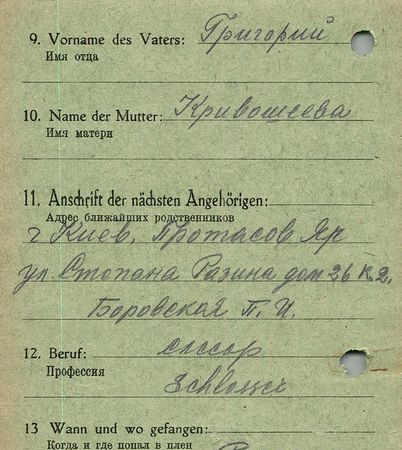 9. Vorname des Vaters: Григорий
Имя отца
10. Name der Mutter: Кривошеева
Имя матери
11. Anschrift der nächsten Angehörigen:
Адрес ближайших родственников
г Киев, Протасов Яр
ул. Стопана Разина дом 26 к. 2,
Боровская П. И.
12. Beruf: слесор
Профессия
Schlosser
13 Wann und wo gefangen:
Когда и где попал в плен